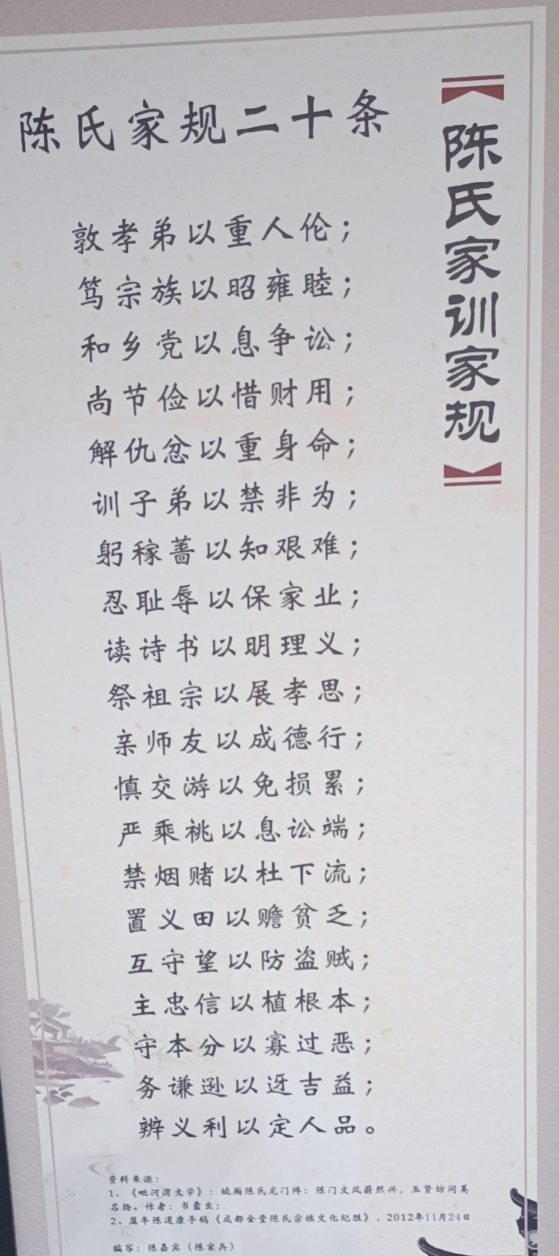 陈氏家训家规
陈氏家规二十条
敦孝弟以重人伦；
笃宗族以昭雍睦；
和乡党以息争讼；
尚节俭以惜财用；
解仇忿以重身命；
训子弟以禁非为；
躬稼蔷以知艰难；
忍耻辱以保家业；
读诗书以明理义；
祭祖宗以展孝思；
亲师友以成德行；
慎交游以免损累；
严乘祧以息讼端；
禁烟赌以杜下流；
置义田以赡贫乏；
互守望以防盗贼；
主忠信以植根本；
守本分以寡过恶；
务谦逊以迓吉益；
辨义利以定人品。
资料来源：
1、《毗河湾文学》：城厢陈氏龙门阵：陈门文风蔚然兴，五贤坊间美
名扬。作者：书蠹虫；
2、属牛陈道康手稿《成都金堂陈氏宗族文化纪胜》，2012年11月24日
编写：陈嘉宾（陈家兵）